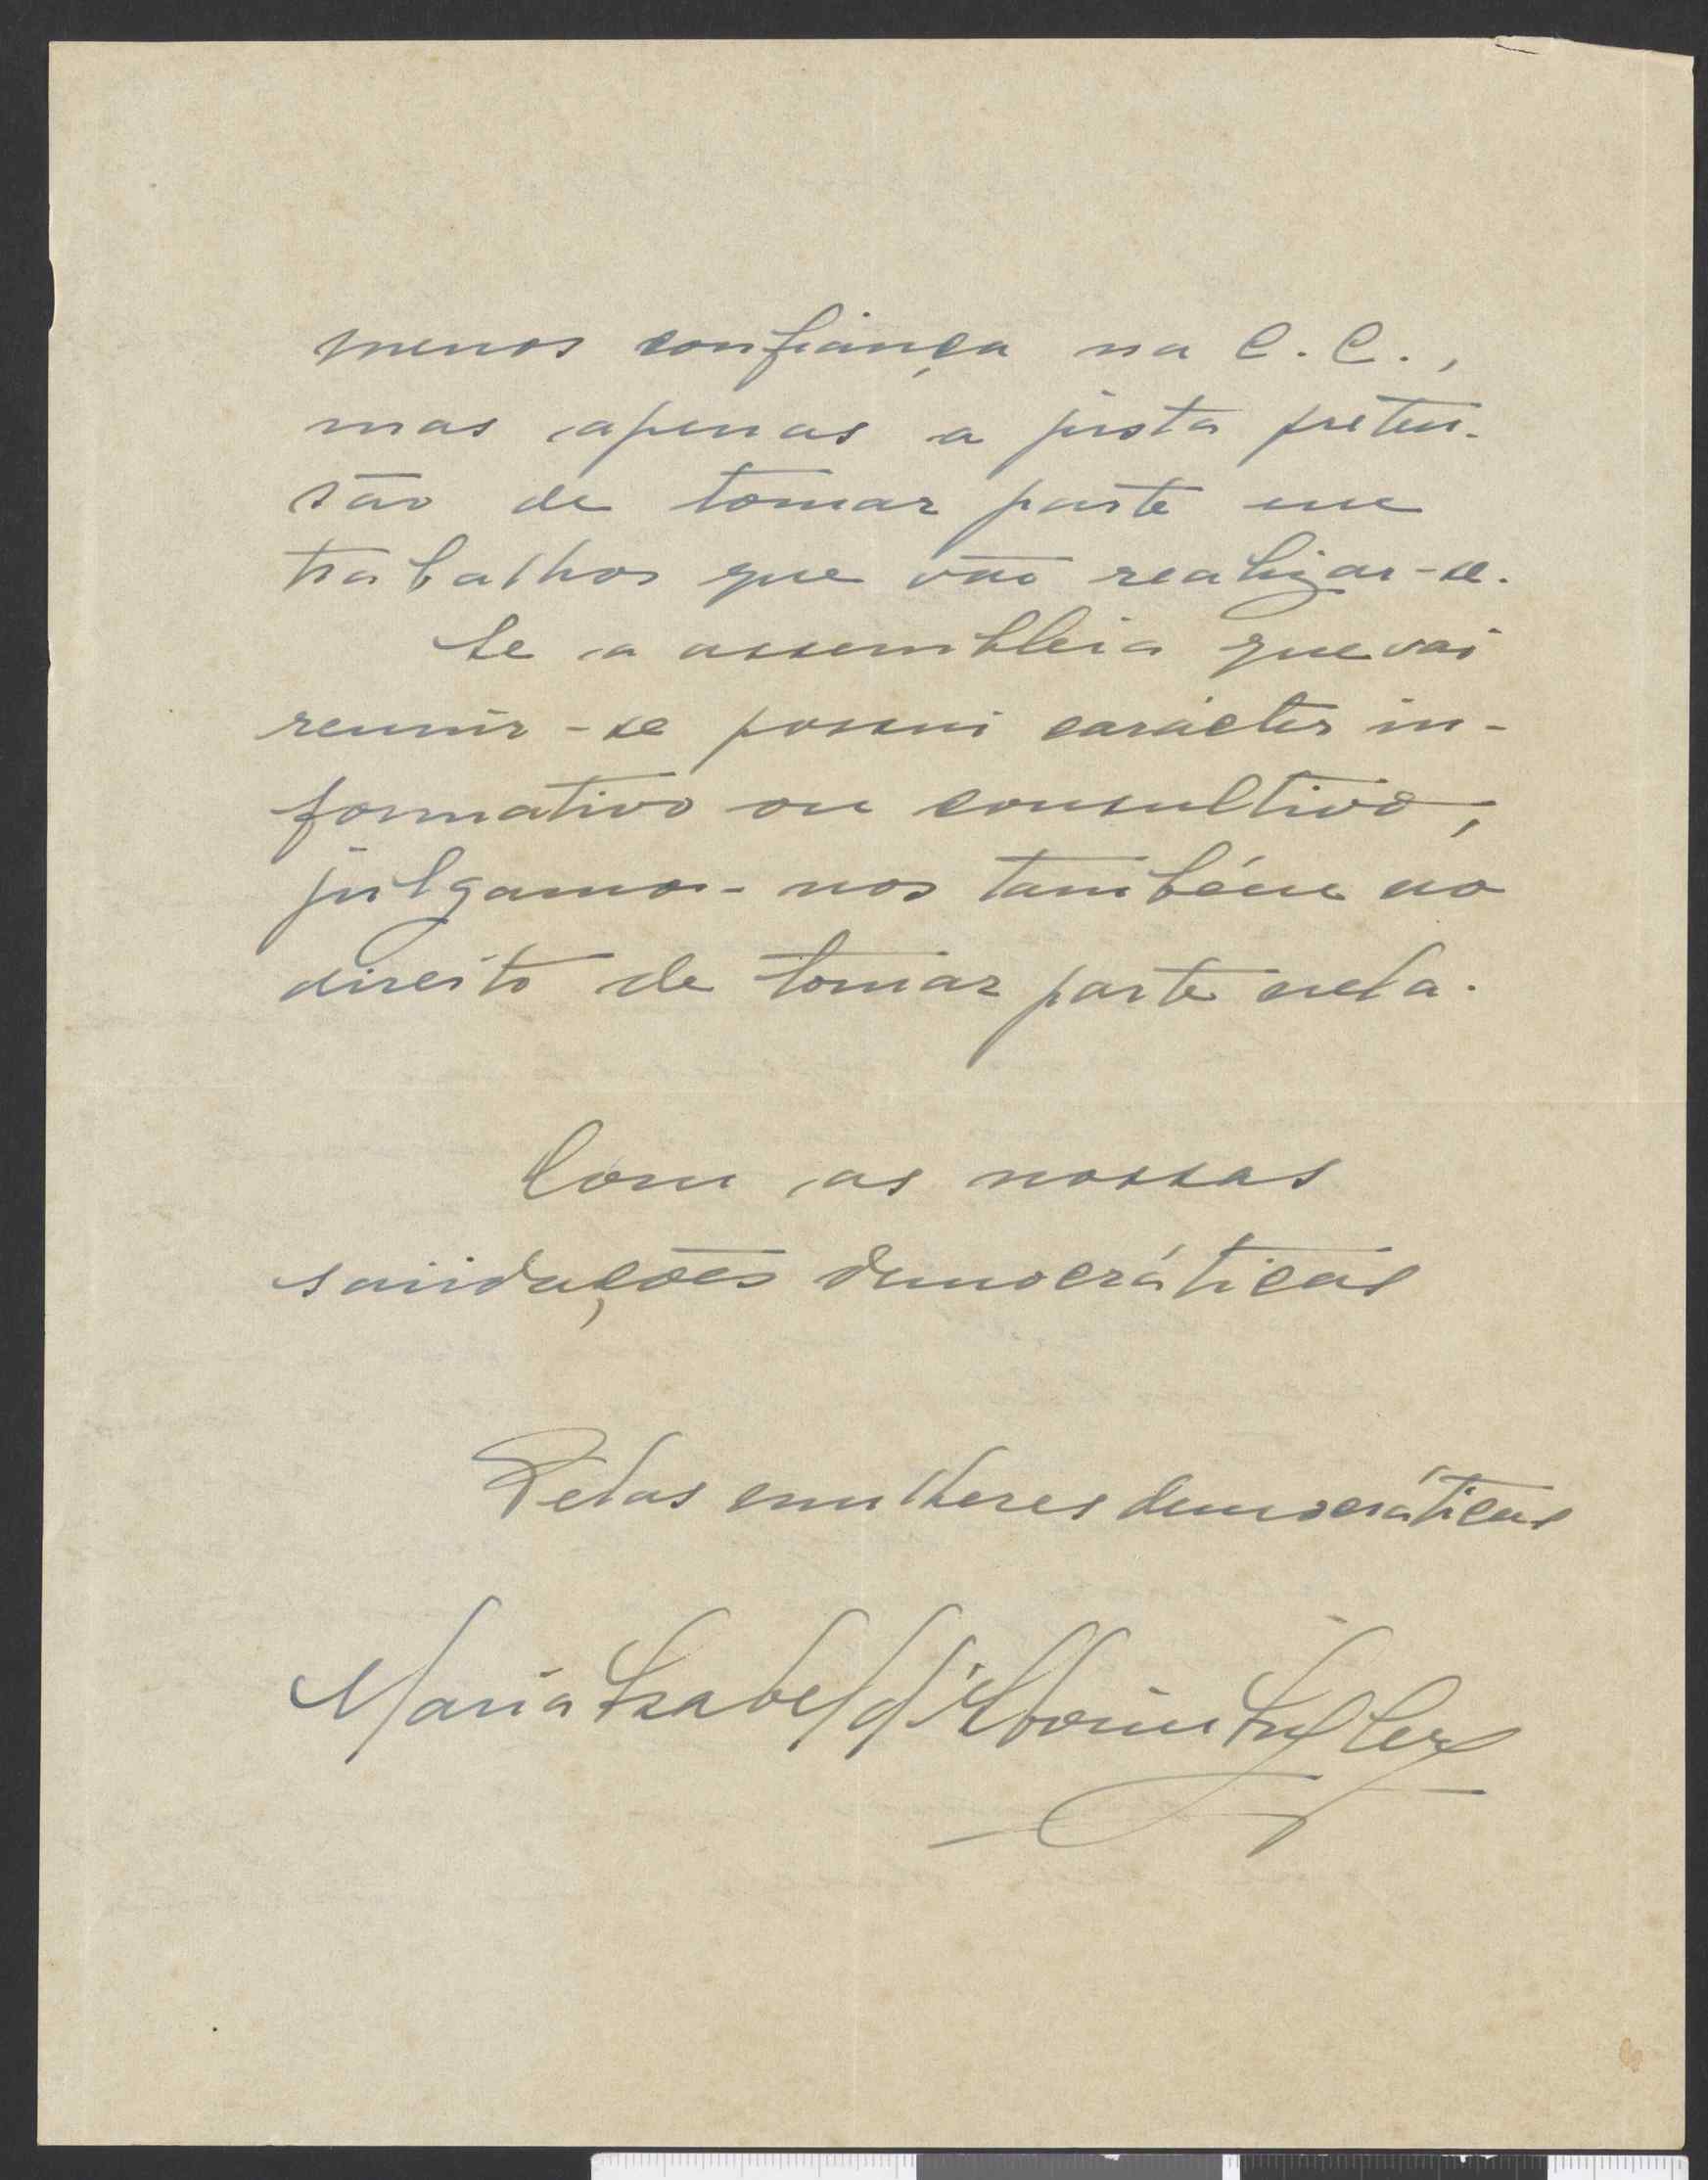 menos confiança na C. C.,
mas apenas a justa preten-
são de tomar parte em
trabalhos que vão realizar-se.
Se a assembleia que vai
reunir-se possui carácter in-
formativo ou consultivo,
julgamo-nos também no
direito de tomar parte nela.
Com as nossas
saüdações democráticas
Pelas mulheres democráticas
Maria Isabel d'Aboim Inglez